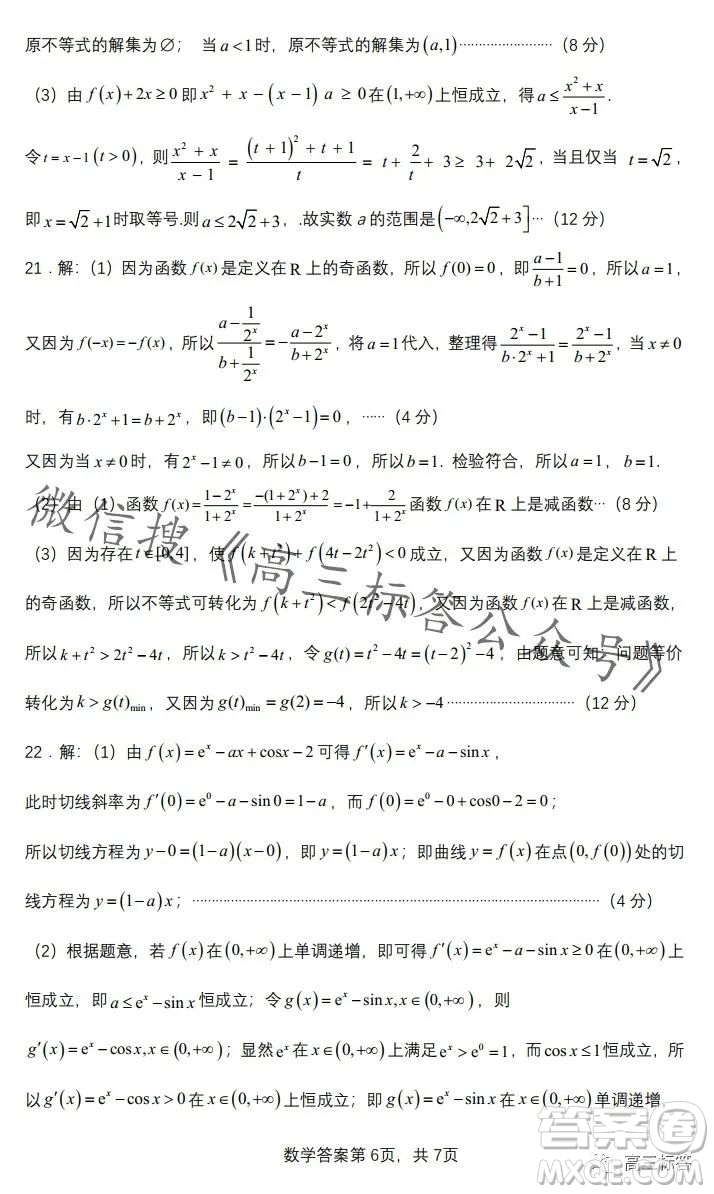 原不等式的解集为∅； 当 a<1 时，原不等式的解集为 (a,1)························（8 分）
（3）由 f(x)+2x≥0 即 x² + x − (x−1) a ≥ 0 在 (1,+∞) 上恒成立，得 a≤(x²+x)/(x−1).
令 t=x−1(t>0)，则 (x²+x)/(x−1) = ((t+1)²+t+1)/t = t+2/t+3≥3+2√2，当且仅当 t=√2，
即 x=√2+1时取等号.则 a≤2√2+3，.故实数 a 的范围是(−∞,2√2+3]···（12 分）
21．解：（1）因为函数 f(x) 是定义在 R 上的奇函数，所以 f(0)=0，即 (a−1)/(b+1)=0，所以 a=1，
又因为 f(−x)=−f(x)，所以 (a−1/2ˣ)/(b+1/2ˣ)=−(a−2ˣ)/(b+2ˣ)，将 a=1代入，整理得 (2ˣ−1)/(b·2ˣ+1)=(2ˣ−1)/(b+2ˣ)，当 x≠0
时，有 b·2ˣ+1=b+2ˣ，即(b−1)·(2ˣ−1)=0，······（4 分）
又因为当 x≠0时，有 2ˣ−1≠0，所以 b−1=0，所以 b=1. 检验符合，所以 a=1，b=1.
（2）由（1）函数 f(x)=(1−2ˣ)/(1+2ˣ)=(−(1+2ˣ)+2)/(1+2ˣ)=−1+2/(1+2ˣ)函数 f(x) 在 R 上是减函数···（8 分）
（3）因为存在 t∈[0,4]，使 f(k+t²)+f(4t−2t²)<0 成立，又因为函数 f(x) 是定义在 R 上
的奇函数，所以不等式可转化为 f(k+t²)<f(2t²−4t)，又因为函数 f(x) 在 R 上是减函数，
所以 k+t²>2t²−4t，所以 k>t²−4t，令 g(t)=t²−4t=(t−2)²−4，由题意可知，问题等价
转化为 k>g(t)min，又因为 g(t)min=g(2)=−4，所以 k>−4·································（12 分）
22．解：（1）由 f(x)=eˣ−ax+cosx−2 可得 f′(x)=eˣ−a−sinx，
此时切线斜率为 f′(0)=e⁰−a−sin0=1−a，而 f(0)=e⁰−0+cos0−2=0；
所以切线方程为 y−0=(1−a)(x−0)，即 y=(1−a)x；即曲线 y=f(x) 在点(0,f(0))处的切
线方程为 y=(1−a)x；·······································································（4 分）
（2）根据题意，若 f(x) 在(0,+∞)上单调递增，即可得 f′(x)=eˣ−a−sinx≥0 在(0,+∞)上
恒成立，即 a≤eˣ−sinx 恒成立；令 g(x)=eˣ−sinx,x∈(0,+∞)，则
g′(x)=eˣ−cosx,x∈(0,+∞)；显然 eˣ 在 x∈(0,+∞)上满足 eˣ>e⁰=1，而 cosx≤1 恒成立，所
以 g′(x)=eˣ−cosx>0 在 x∈(0,+∞)上恒成立；即 g(x)=eˣ−sinx 在 x∈(0,+∞)单调递增，
数学答案第 6页，共 7页
微信搜《高三标答公众号》
答案圈
高三标答
MXQE.COM